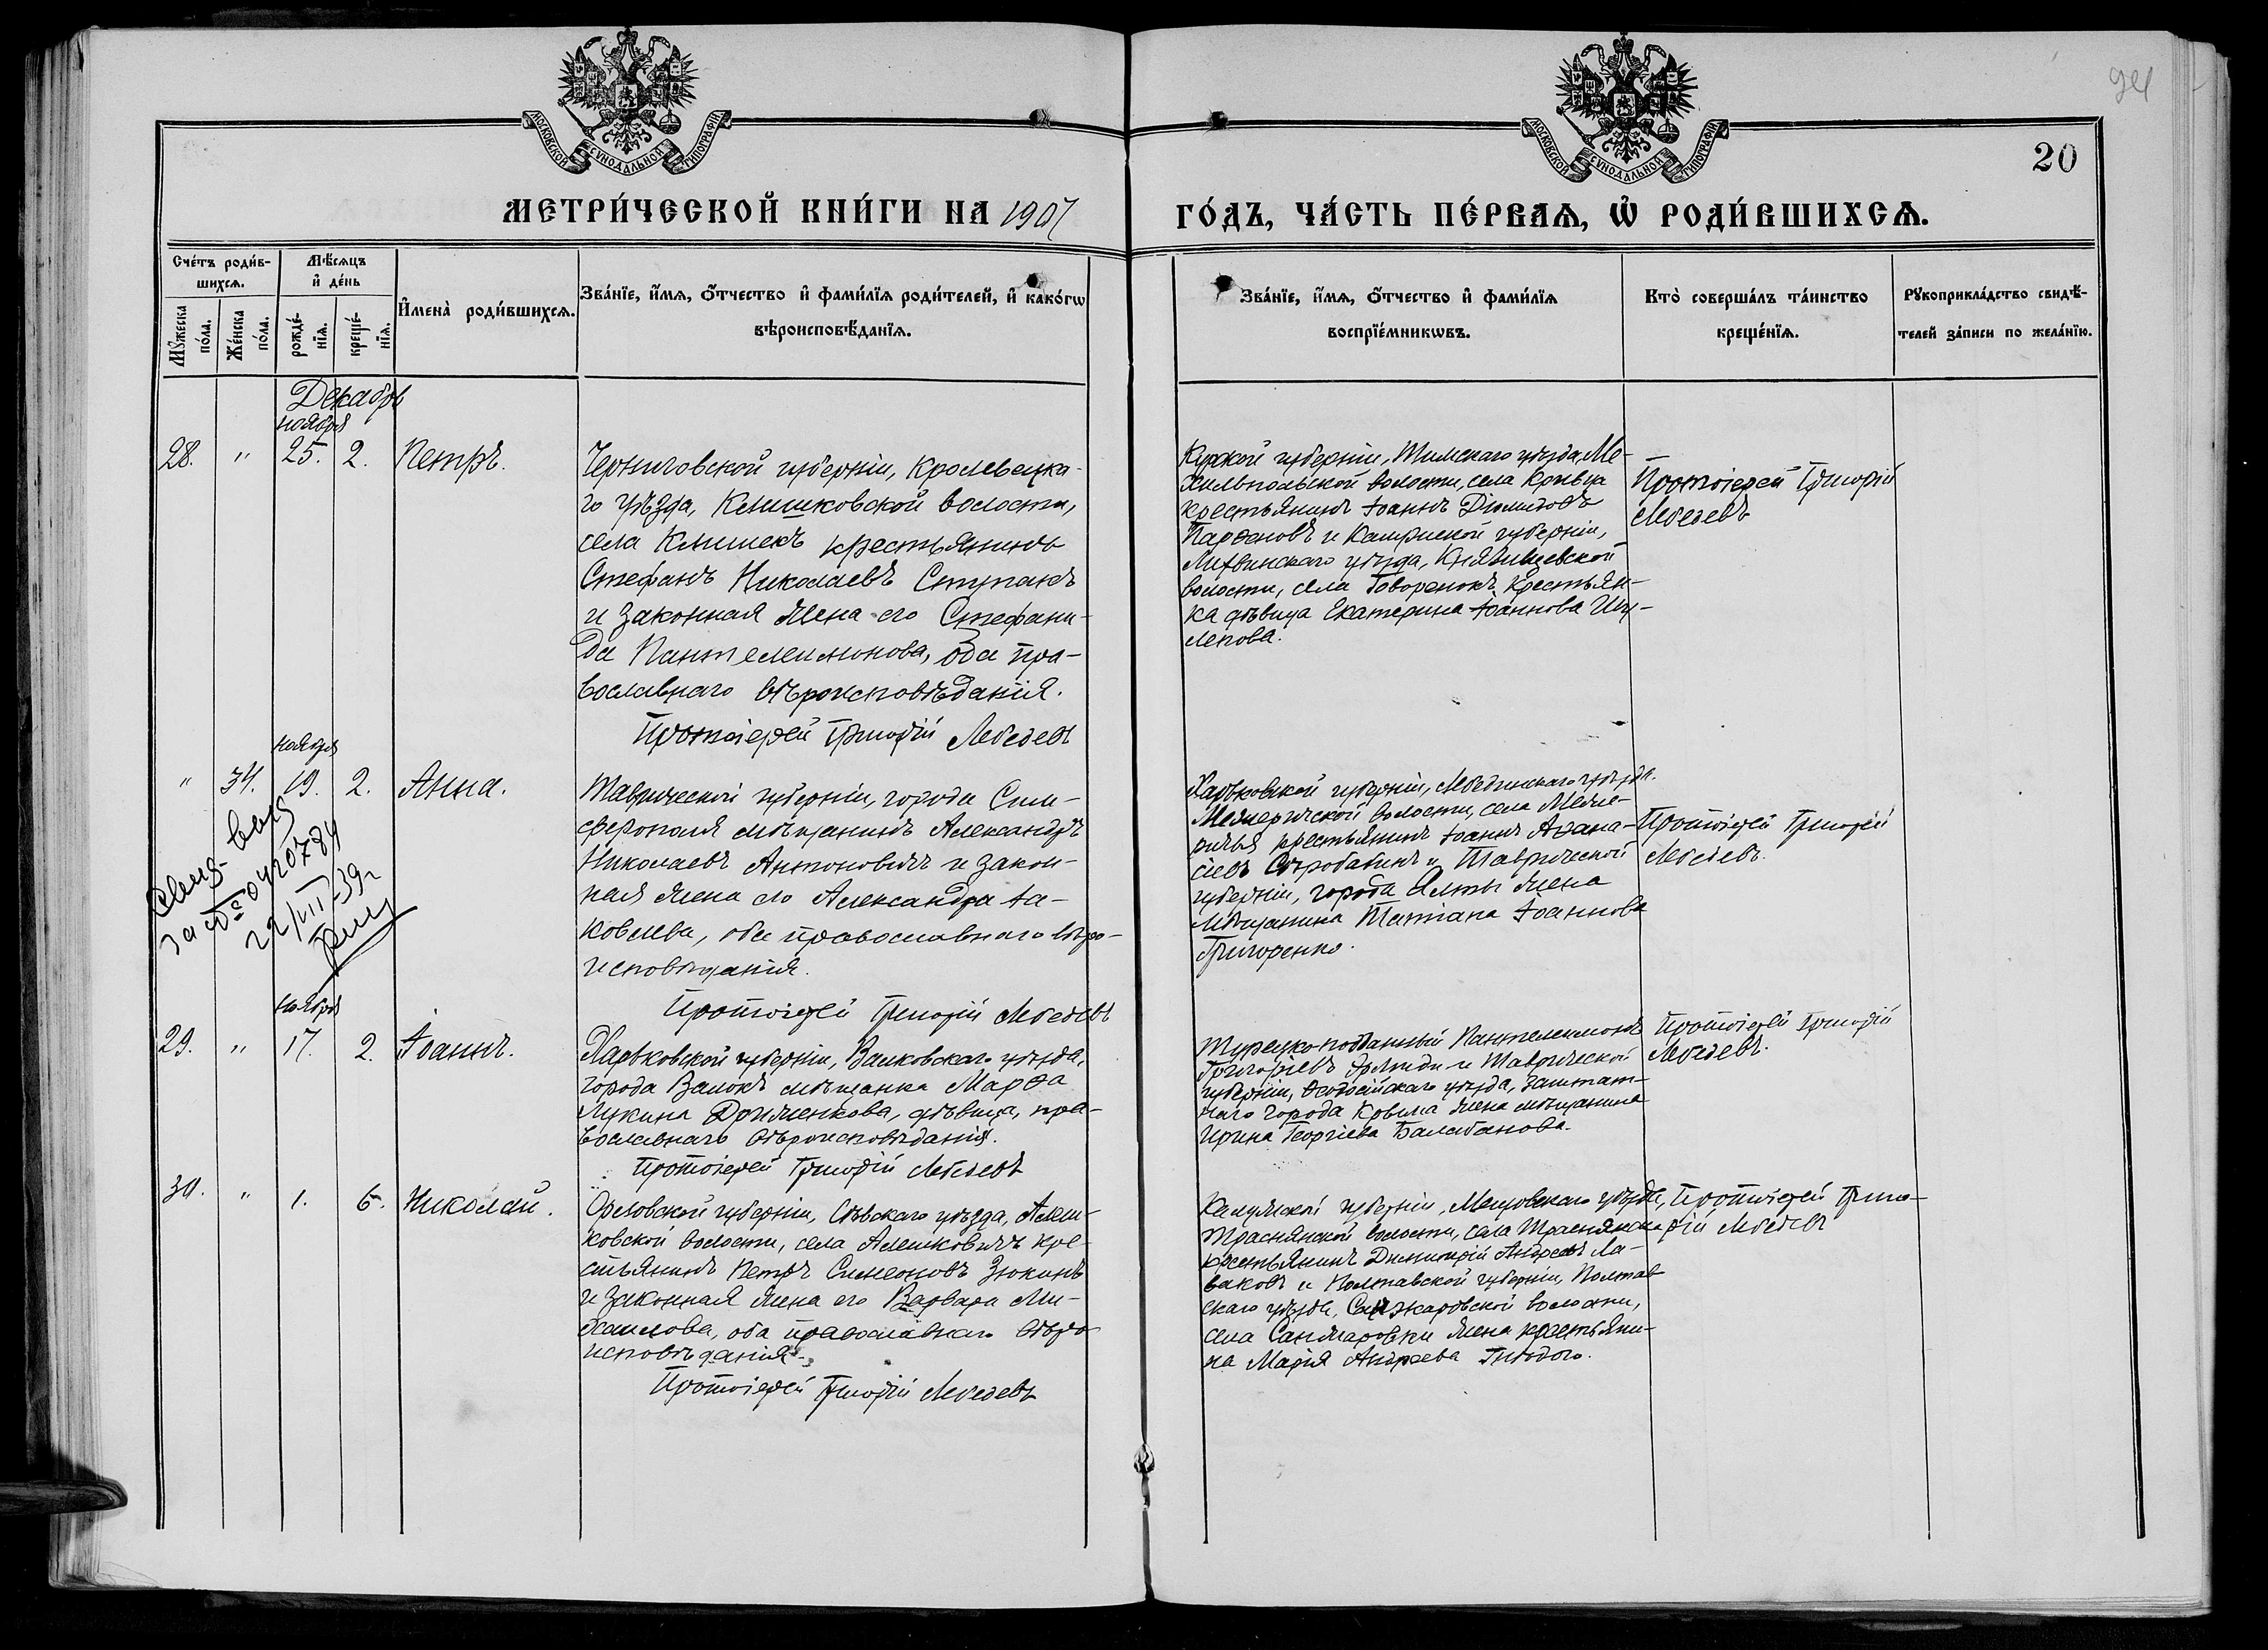 94
МОСКОВСКОЙ СѴНОДАЛЬНОЙ ТИПОГРАФІИ
МОСКОВСКОЙ СѴНОДАЛЬНОЙ ТИПОГРАФІИ
20
МЕТРИ́ЧЕСКОЙ КНИ́ГИ НА 1907
ГО́ДЪ, ЧА́СТЬ ПЕ́РВАѦ, Ѽ РОДИ́ВШИХСѦ.
Сче́тъ роди́в-
шихсѧ.
Мѣ́сѧцъ
и҆ де́нь
Мꙋ́жеска
по́ла.
Же́нска
по́ла.
рожде́-
нїѧ.
креще́-
нїѧ.
И҆мена̀ роди́вшихсѧ.
Зва́нїе, и҆́мѧ, ѻ҆́тчество и҆ фами́лїѧ роди́телей, и҆ како́гѡ
вѣроисповѣ́данїѧ.
Зва́нїе, и҆́мѧ, ѻ҆́тчество и҆ фами́лїѧ
воспрїе́мникѡвъ.
Кто̀ соверша́лъ та́инство
креще́нїѧ.
Рꙋкоприкла́дство свидѣ́-
телей за́писи по жела́нїю.
Декабрь
ноября
28. " 25. 2. Петръ.
Черниговской губерніи, Кролевецка-
го уѣзда, Клишковской волости,
села Клишекъ крестьянинъ
Стефанъ Николаевъ Ступакъ
и законная жена его Стефани-
да Пантелеимонова, оба пра-
вославнаго вѣроисповѣданія.
Протоіерей Григорій Лебедевъ
Курской губерніи, Тимскаго уѣзда, Ме-
хильпольской волости, села Кривца
крестьянинъ Іоаннъ Діомидовъ
Парѳеновъ и Калужской губерніи,
Лихвинскаго уѣзда, Княжищевской
волости, села Говоренокъ крестьян-
ка дѣвица Екатерина Іоаннова Шу-
лепова.
Протоіерей Григорій
Лебедевъ
ноября
" 34. 19. 2. Анна.
Таврической губерніи, города Сим-
ферополя мѣщанинъ Александръ
Николаевъ Антоновичъ и закон-
ная жена его Александра Іа-
ковлева, оба православнаго вѣро-
исповѣданія.
Протоіерей Григорій Лебедевъ
Харьковской губерніи, Лебединскаго уѣзда.
Межиричской волости, села Межи-
ричья крестьянинъ Іоаннъ Аѳана-
сіевъ Скоробагинъ и Таврической
губерніи, города Ялты жена
мѣщанина Татіана Іоаннова
Григоренко.
Протоіерей Григорій
Лебедевъ.
Свид. выд
за № 0420784
22/VII 39г
ноября
29. " 17. 2. Іоаннъ.
Харьковской губерніи, Валковскаго уѣзда,
города Валокъ мѣщанка Марѳа
Лукина Должненкова, дѣвица, пра-
вославнаго вѣроисповѣданія.
Протоіерей Григорій Лебедевъ
Турецко-подданный Пантелеимонъ
Григоріевъ и Таврической
губерніи, Ѳеодосійскаго уѣзда, заштат-
наго города Крыма жена мѣщанина
Ирина Георгіева Балабанова.
Протоіерей Григорій
Лебедевъ.
30. " 1. 6. Николай.
Орловской губерніи, Сѣвскаго уѣзда, Алеш-
ковской волости, села Алешковичъ кре-
стьянинъ Петръ Симеоновъ Зюкинъ
и законная жена его Варвара Ми-
хаилова, оба православнаго вѣро-
исповѣданія.
Протоіерей Григорій Лебедевъ
Калужской губерніи, Мещовскаго уѣзда,
Траснянской волости, села Траснянска
крестьянинъ Димитрій Андреевъ Ла-
ваковъ и Полтавской губерніи, Полтав
скаго уѣзда, Санжаровской волости,
села Санжаровки жена крестьяни-
на Марія Андреева Гнѣдого.
Протоіерей Григо-
рій Лебедевъ